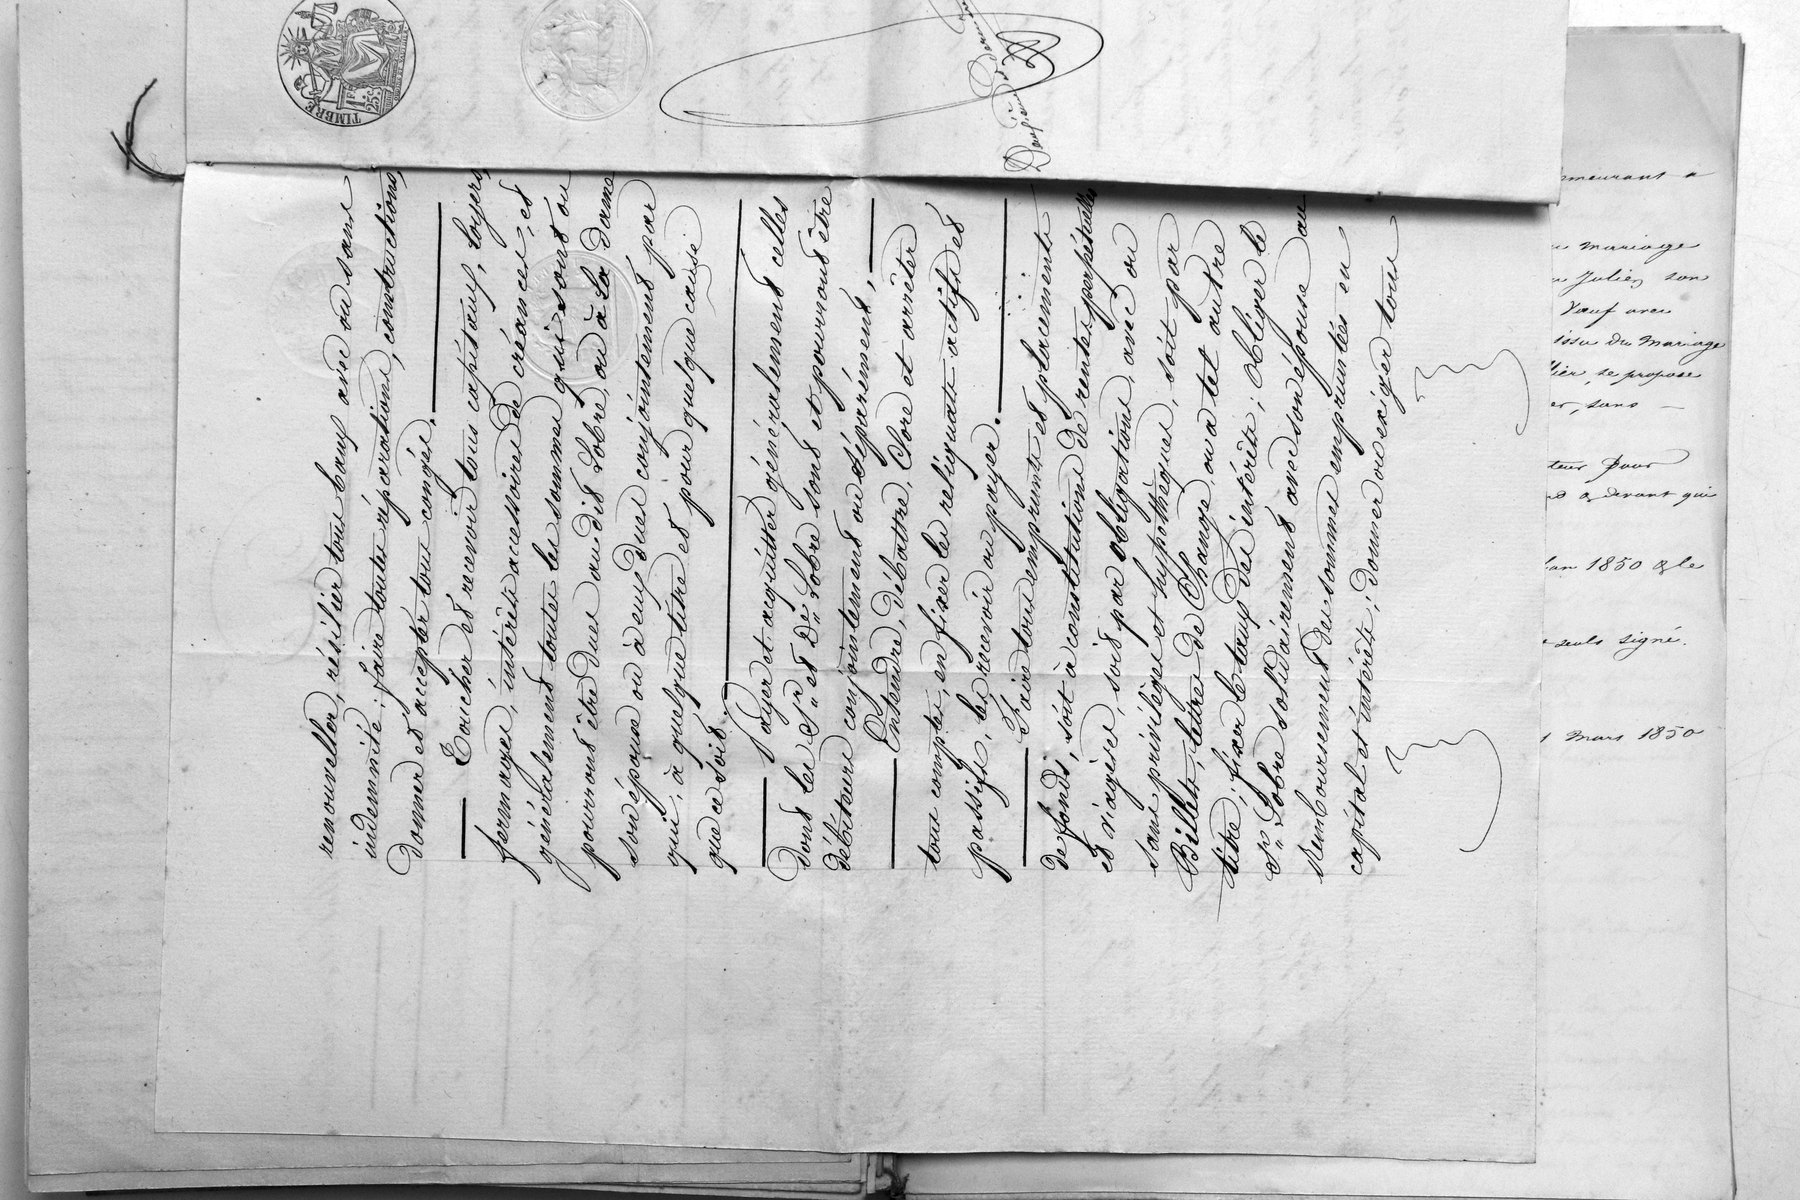 renouveller, résilier tous baux avec ou sans
indemnité; faire toutes réparations, constructions,
Donner et accepter tous congés.
Toucher et recevoir tous capitaux, loyers,
fermages, intérêts accessoires de créances, et
généralement toutes les sommes qui sont ou
pourront être dues au dit Lobre, ou à la dame
son épouse ou à eux dues conjointement par
qui, à quelque titre et pour quelque cause
que ce soit.
Payer et acquitter généralement celles
dont les Sr. et De. Lobre sont et pourront être
débiteurs conjointement ou séparément.
Entendre, débattre, Clore et arrêter
tous comptes, en fixer les reliquats actifs et
passifs, les recevoir ou payer.
Faire tous emprunts et placements
de fonds, soit à constitutions de rentes perpétuelles
et viagères, soit par obligations, avec ou
sans privilèges et hypothèques, soit par
Billets, lettres de Change, ou à tel autre
titre; fixer le taux des intérêts; obliger le
Sr. Lobre solidairement avec son épouse au
Remboursement des sommes empruntées en
capital et intérêts; donner ou exiger tous
TIMBRE
1F.
25c.
demeurant à
Mariage
Julien son
Veuf avec
issu du Mariage
se propose
sans
pour
devant qui
l'an 1850 & le
seuls signé.
Mars 1850